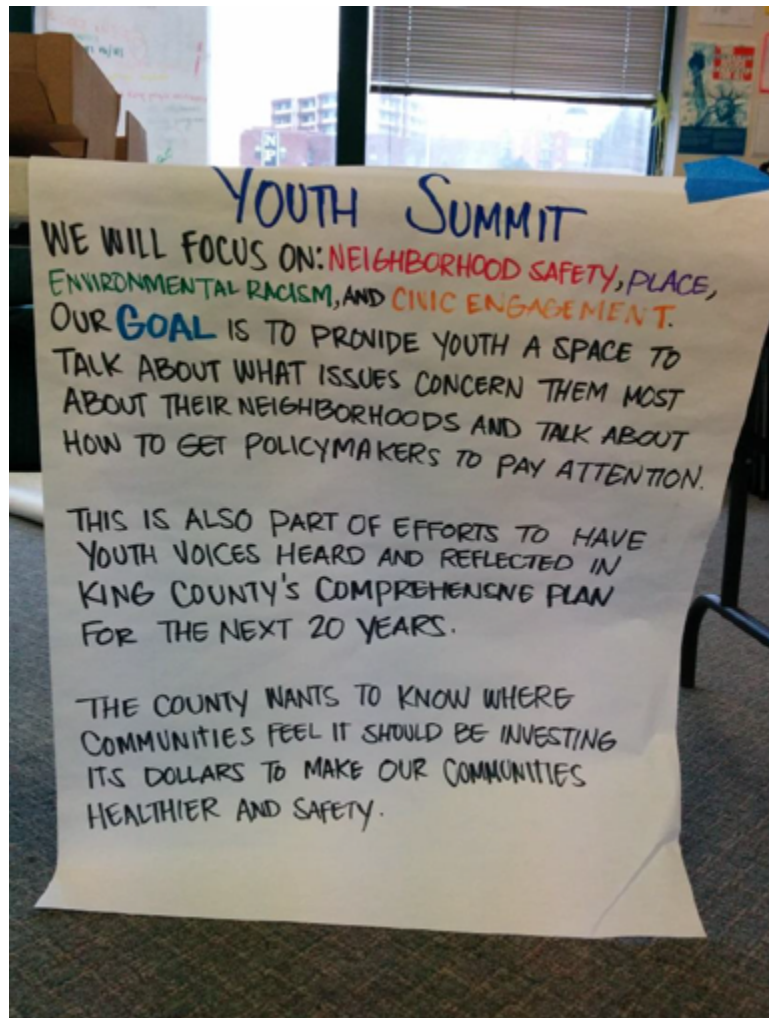 YOUTH SUMMIT
WE WILL FOCUS ON: NEIGHBORHOOD SAFETY, PLACE,
ENVIRONMENTAL RACISM, AND CIVIC ENGAGEMENT.
OUR GOAL IS TO PROVIDE YOUTH A SPACE TO
TALK ABOUT WHAT ISSUES CONCERN THEM MOST
ABOUT THEIR NEIGHBORHOODS AND TALK ABOUT
HOW TO GET POLICYMAKERS TO PAY ATTENTION.
THIS IS ALSO PART OF EFFORTS TO HAVE
YOUTH VOICES HEARD AND REFLECTED IN
KING COUNTY'S COMPREHENSIVE PLAN
FOR THE NEXT 20 YEARS.
THE COUNTY WANTS TO KNOW WHERE
COMMUNITIES FEEL IT SHOULD BE INVESTING
ITS DOLLARS TO MAKE OUR COMMUNITIES
HEALTHIER AND SAFETY.